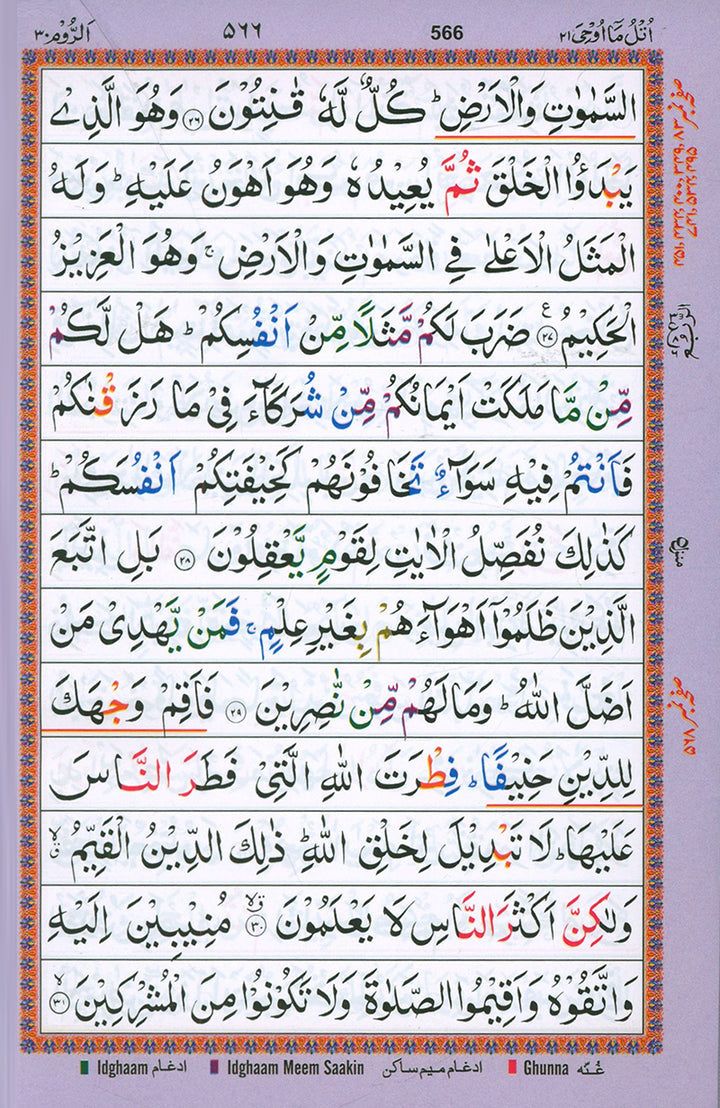 اُتْلُ مَآ اُوْحِیَ ۲۱ 566 ۵۶۶ اَلرُّوْم ۳۰
السَّمٰوٰتِ وَالْاَرْضِ ؕ كُلٌّ لَّهٗ قٰنِتُوْنَ ۝۲۶ وَهُوَ الَّذِیْ
یَبْدَؤُا الْخَلْقَ ثُمَّ یُعِیْدُهٗ وَهُوَ اَهْوَنُ عَلَیْهِ ؕ وَلَهُ
الْمَثَلُ الْاَعْلٰی فِی السَّمٰوٰتِ وَالْاَرْضِ ۚ وَهُوَ الْعَزِیْزُ
الْحَكِیْمُ ۝۲۷ ع ضَرَبَ لَكُمْ مَّثَلًا مِّنْ اَنْفُسِكُمْ ؕ هَلْ لَّكُمْ
مِّنْ مَّا مَلَكَتْ اَیْمَانُكُمْ مِّنْ شُرَكَآءَ فِیْ مَا رَزَقْنٰكُمْ
فَاَنْتُمْ فِیْهِ سَوَآءٌ تَخَافُوْنَهُمْ كَخِیْفَتِكُمْ اَنْفُسَكُمْ ؕ
كَذٰلِكَ نُفَصِّلُ الْاٰیٰتِ لِقَوْمٍ یَّعْقِلُوْنَ ۝۲۸ بَلِ اتَّبَعَ
الَّذِیْنَ ظَلَمُوْۤا اَهْوَآءَهُمْ بِغَیْرِ عِلْمٍ ۚ فَمَنْ یَّهْدِیْ مَنْ
اَضَلَّ اللّٰهُ ؕ وَمَا لَهُمْ مِّنْ نّٰصِرِیْنَ ۝۲۹ فَاَقِمْ وَجْهَكَ
لِلدِّیْنِ حَنِیْفًا ؕ فِطْرَتَ اللّٰهِ الَّتِیْ فَطَرَ النَّاسَ
عَلَیْهَا ؕ لَا تَبْدِیْلَ لِخَلْقِ اللّٰهِ ؕ ذٰلِكَ الدِّیْنُ الْقَیِّمُ ۙق
وَلٰكِنَّ اَكْثَرَ النَّاسِ لَا یَعْلَمُوْنَ ۝۳۰ ۗۙ مُنِیْبِیْنَ اِلَیْهِ
وَاتَّقُوْهُ وَاَقِیْمُوا الصَّلٰوةَ وَلَا تَكُوْنُوْا مِنَ الْمُشْرِكِیْنَ ۝۳۱ ۙ
منزل ۵
Idghaam ادغام Idghaam Meem Saakin ادغام میم ساکن Ghunna غُنّه